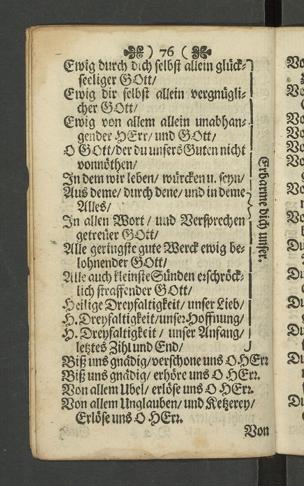 ) 76 (
Ewig durch dich selbst allein glück-
seeliger GOtt/
Ewig dir selbst allein vergnügli-
cher GOtt/
Ewig von allem allein unabhan-
gender HErr/ und GOtt/
O GOtt/ der du unsers Guten nicht
vonnöthen/
In dem wir leben/ würcken u. seyn/
Aus deme/ durch dene/ und in deme
Alles/
In allen Wort/ und Versprechen
getreüer GOtt/
Alle geringste gute Werck ewig be-
lohnender GOtt/
Alle auch kleinste Sünden erschröck-
lich straffender GOtt/
Heilige Dreyfaltigkeit/ unser Lieb/
H. Dreyfaltigkeit/ unser Hoffnung/
H. Dreyfaltigkeit/ unser Anfang/
letztes Zihl und End/
Erbarme dich unser.
Biß uns gnädig/ verschone uns O HErr.
Biß uns gnädig/ erhöre uns O HErr.
Von allem Ubel/ erlöse uns O HErr.
Von allem Unglauben/ und Ketzerey/
Erlöse uns O HErr.
Von